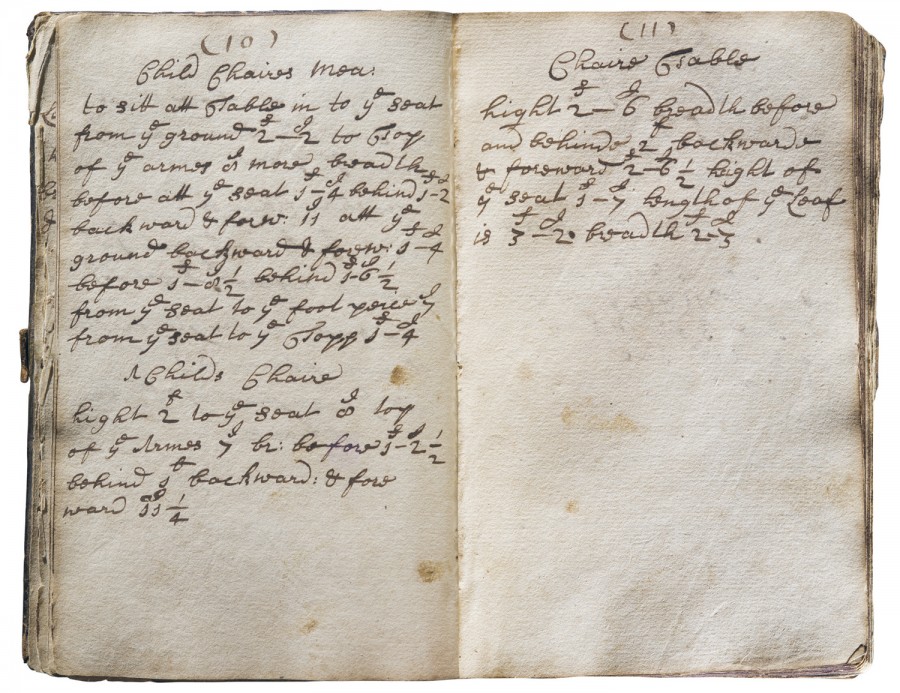 (10)
Child Chaires Mea:
to sitt att Table in to yᵉ seat
from yᵉ ground 2ᶠ-2ᴵ to Topp
of yᵉ armes 8ᴵ more breadth
before att yᵉ seat 1ᶠ-4ᴵ behind 1ᶠ-2ᴵ
backward & forew: 11ᴵ att yᵉ
ground backward & forew: 1ᶠ-4ᴵ
before 1ᶠ-8ᴵ½ behind 1ᶠ-6ᴵ½
from yᵉ seat to yᵉ foot peice 7ᴵ
from yᵉ seat to yᵉ Topp 1ᶠ-4ᴵ
A Childs Chaire
hight 2ᶠ to yᵉ seat 8ᴵ top
of yᵉ Armes 7ᴵ br: before 1ᶠ-2ᴵ½
behind 1ᶠ backward: & fore
ward 11ᴵ¼
(11)
Chaire Table
hight 2ᶠ-6ᴵ breadth before
and behinde 2ᶠ backwarde
& foreward 2ᶠ-6ᴵ½ hight of
yᵉ seat 1ᶠ-7ᴵ length of yᵉ Leaf
is 3ᶠ-2ᴵ breadth 2ᶠ-3ᴵ